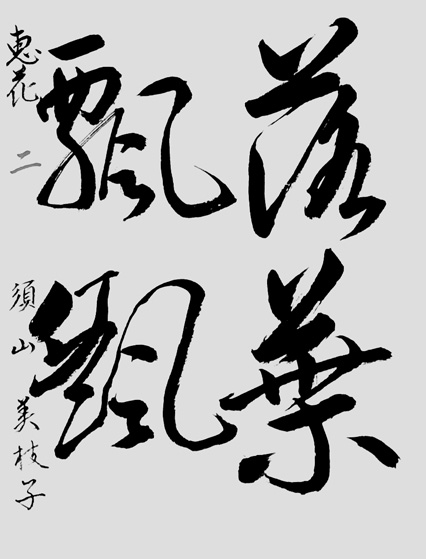 落葉
飄颻
恵花 二 須山美枝子